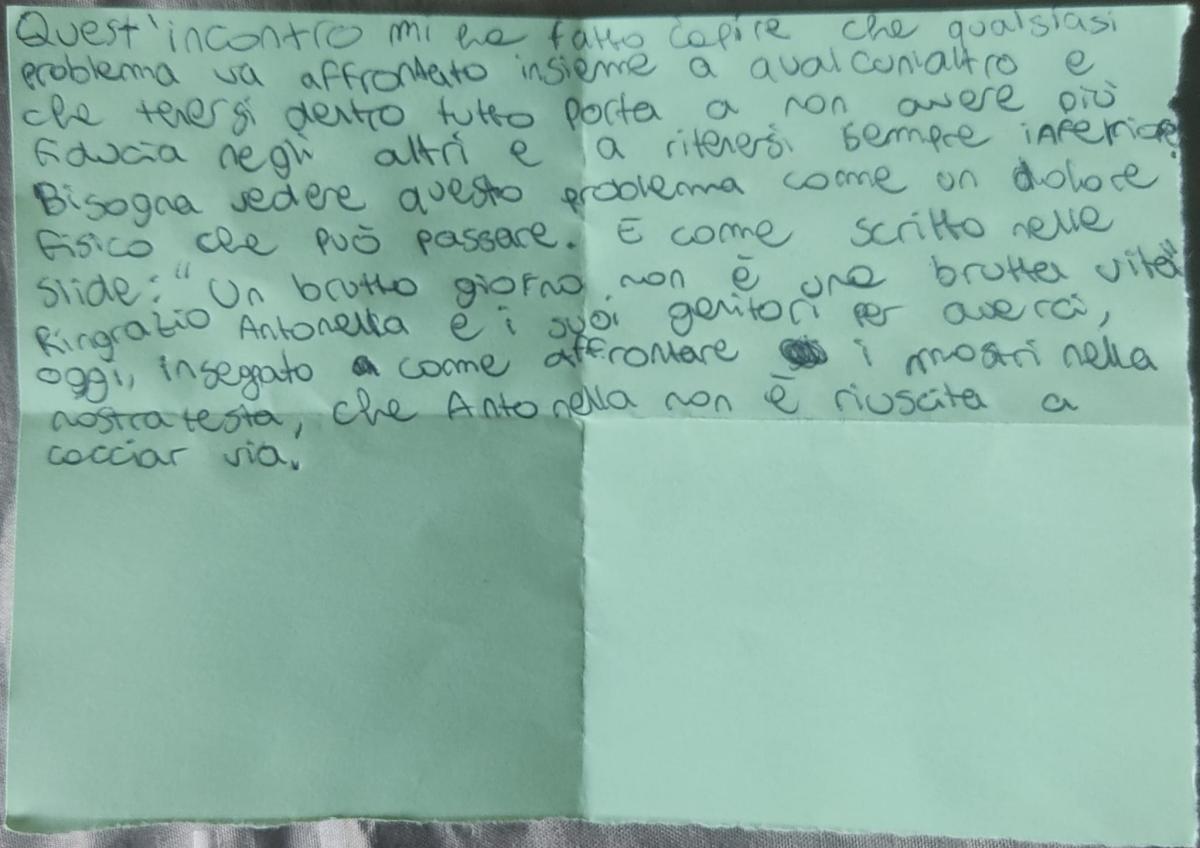 Quest'incontro mi ha fatto capire che qualsiasi
problema va affrontato insieme a qualcun'altro e
che tenersi dentro tutto porta a non avere più
fiducia negli altri e a ritenersi sempre inferiore.
Bisogna vedere questo problema come un dolore
fisico che può passare. E come scritto nelle
slide: "Un brutto giorno non è una brutta vita"
Ringrazio Antonella e i suoi genitori per averci,
oggi, insegnato come affrontare i mostri nella
nostra testa, che Antonella non è riuscita a
cacciar via.